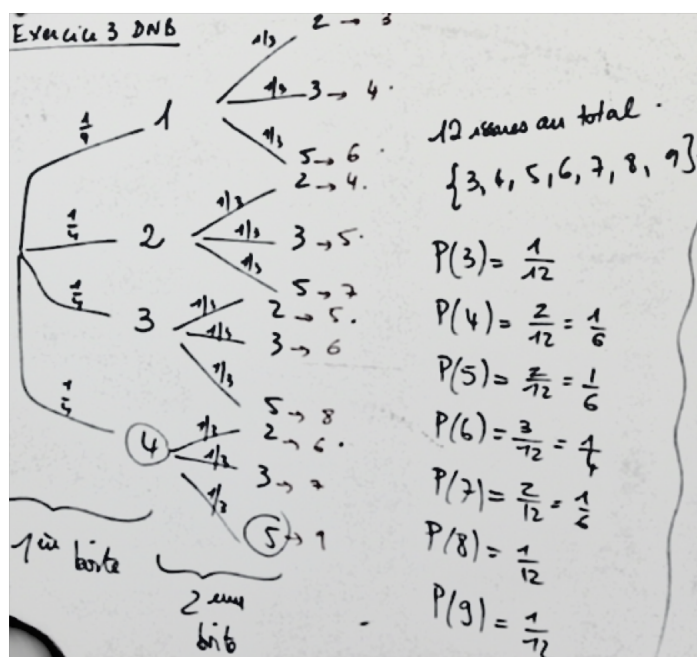 Exercice 3 DNB
1/3 2 → 3
1/4 1 1/3 3 → 4.
1/3 5 → 6
1/3 2 → 4.
1/4 2 1/3 3 → 5.
1/3 5 → 7
1/3 2 → 5.
1/4 3 1/3 3 → 6
1/3 5 → 8
1/3 2 → 6.
1/4 4 1/3 3 → 7
1/3 5 → 9
1ère boîte
2 eme
boîte
12 issues au total.
{3, 4, 5, 6, 7, 8, 9}
P(3) = 1/12
P(4) = 2/12 = 1/6
P(5) = 2/12 = 1/6
P(6) = 3/12 = 1/4
P(7) = 2/12 = 1/6
P(8) = 1/12
P(9) = 1/12